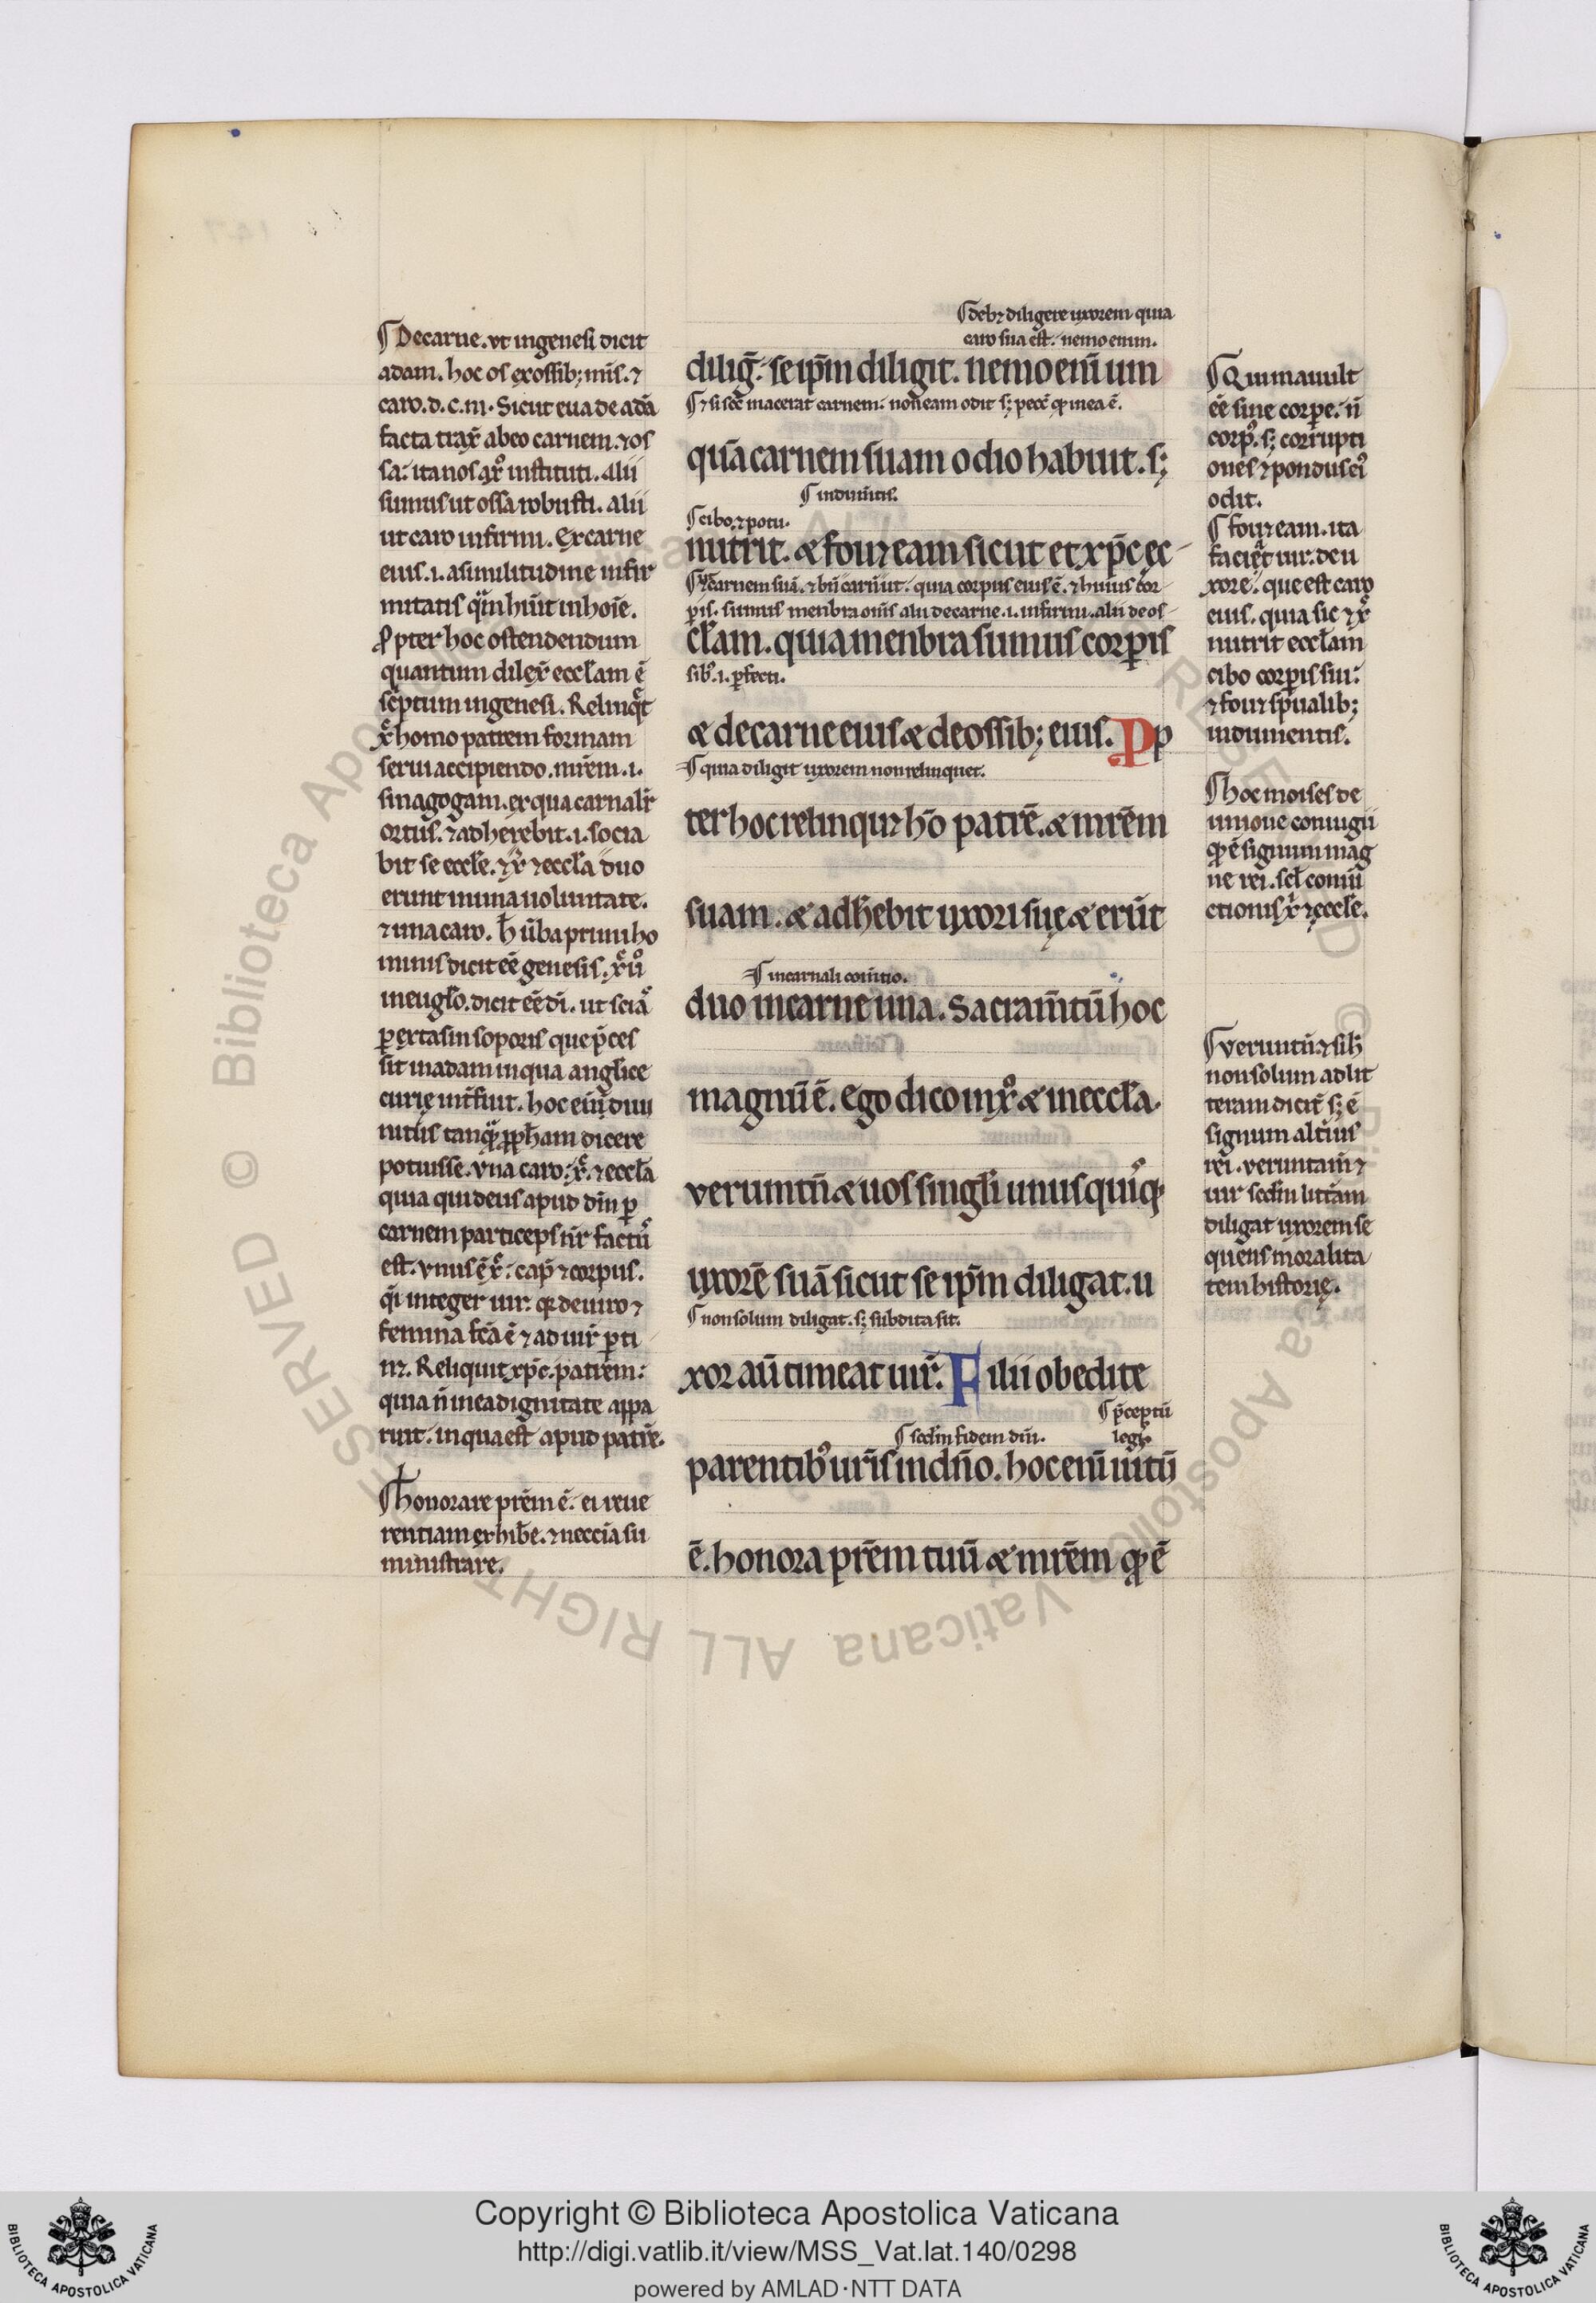 ¶ De carne. ut in genesi dicit
adam. hoc os ex ossib; mīs. ⁊
caro. d. c. m. Sicut eua de adā
facta trax̄ ab eo carnem. ⁊ os
sa. ita nos a xp̄o instituti. alii
sumus ut ossa robusti. alii
ut caro infirmi. Ex carne
eius .i. a similitudine infir
mitatis q̄m hūit in hoīe.
Ꝓpter hoc ostendendum
quantum dilex̄ eccl̄am ē
sc̄ptum in genesi. Relinq̄t
xp̄c homo patrem formam
serui accipiendo. mr̄em .i.
sinagogam. ex qua carnalit̄
ortus. ⁊ adherebit .i. socia
bit se eccl̄e. ⁊ xp̄c ⁊ eccl̄a duo
erunt in una uoluntate.
⁊ una caro. h̄ ūba primi ho
minis dicit eē genesis. xp̄c ū
in eugl̄o. dicit eē dī. ut sciāt
ꝑ extasin soporis que p̄ces
sit in adam in qua anglice
curie int̄fuit. hoc eū duū
nitus tanq̄ ꝓph̄am dicere
potuisse. Vna caro. xp̄c ⁊ eccl̄a
quia qui deus apud dm̄ ꝑ
carnem particeps nr̄ factus
est. Vnus ē xp̄c. cap̄ ⁊ corpus.
q̄i integer uir. qꝫ de uiro ⁊
femina fc̄a ē ⁊ ad uir̄ ꝑti
n⁊. Reliquit xp̄c. patrem:
quia n̄ in ea dignitate appa
ruit. in qua est apud patrē.
¶ Honorare pr̄em ē. ei reue
rentiam exhibe. ⁊ neccīa su
ministrare.
¶ deb⁊ diligere uxorem quia
caro sua est. nemo enim.
diliḡ. se ip̄m diligit. nemo eni um
¶ ⁊ si sc̄s macerat carnem. non eam odit s; pecc̄ qđ in ea ē.
quā carnem suam odio habuit. s;
¶ indum̄tis.
¶ cibo. ⁊ potu.
nutrit. & fou⁊ eam sicut et xp̄c ec-
carnem suā. ⁊ bn̄ carū ut. quia corpus eius ē. ⁊ huius cor-
ꝑis. sumus menbra om̄s alii de carne .i. infirmi. alii de os-
cl̄am. quia menbra sumus corꝑis
sib; .i. ꝑfecti.
& de carne eius & de ossib; eius. Pp
¶ quia diligit uxorem non relinquet.
ter hoc relinqu⁊ hō patrē. & mr̄em
suam. & adh̄ebit uxori suę & erūt
¶ in carnali com̄tio.
duo in carne una. Sacram̄tū hoc
magnū ē. ego dico in xp̄o & in eccl̄a.
Veruntn̄ & uos singl̄i unusquisqꝫ
uxorē suā sicut se ip̄m diligat. u
¶ non solum diligat. s; subdita sit.
xor au timeat uir̄. Filii obedite
¶ p̄ceptū
¶ scd̄m fidem dn̄i. legis
parentib; uris in dn̄o. hoc eni iustū
ē. honora pr̄em tuū & mr̄em qđ ē
¶ Qui mauult
eē sine corpe. n̄
corp;. s; corrupti
ones ⁊ pondus ei;
odit.
¶ fou⁊ eam. ita
faci⁊ uir. de u
xore. que est caro
eius. quia sic ⁊ xp̄c
nutrit eccl̄am
cibo corꝑis sui:
⁊ fou⁊ spūalib;
indumentis.
¶ hoc moises de
unione coniugii
qđ ē signum mag
ne rei. scl̄ coniū
ctionis xp̄i ⁊ eccl̄e.
¶ Veruntn̄ ⁊ si h̄
non solum ad lit
teram dicit̄ s; ē
signum alti;us
rei. veruntam̄ ⁊
uir scd̄m litt̄am
diligat uxorem se
quens moralita
tem historię.
Copyright © Biblioteca Apostolica Vaticana
http://digi.vatlib.it/view/MSS_Vat.lat.140/0298
powered by AMLAD·NTT DATA